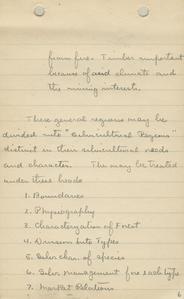 from fire. Timber important
because of arid climate and
the mining interests.
These general regions may be
divided into "Silvicultural Regions"
distinct in their silvicultural needs
and character. The may be treated
under these heads
1. Boundaries
2. Physiography
3. Characterization of Forest
4. Division into Types
5. Silv. char. of species
6. Silv. Management for each type
7. Market Relations
6